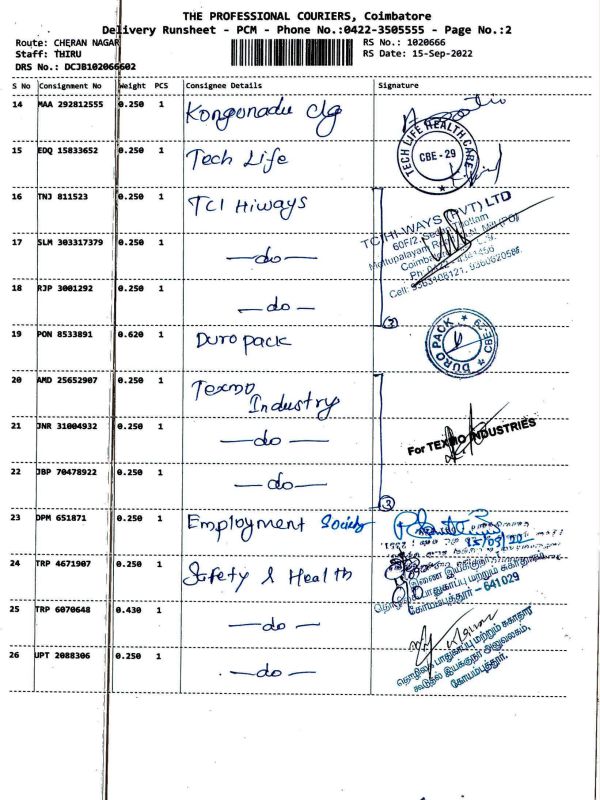 THE PROFESSIONAL COURIERS, Coimbatore
Delivery Runsheet - PCM - Phone No.:0422-3505555 - Page No.:2
Route: CHERAN NAGAR
RS No.: 1020666
Staff: THIRU
RS Date: 15-Sep-2022
DRS No.: DCJB102066602
S No Consignment No Weight PCS Consignee Details Signature
14 MAA 292812555 0.250 1 Kongunadu clg
15 EDQ 15833652 0.250 1 Tech Life
TECH LIFE HEALTH CARE
CBE - 29
16 TNJ 811523 0.250 1 TCI Hiways
TCI HI-WAYS (PVT) LTD
60F/2,
Mettupalayam
Coimbatore
17 SLM 303317379 0.250 1 —do—
18 RJP 3001292 0.250 1 —do—
3
19 PON 8533891 0.620 1 Duropack
DURO PACK
CBE-29
20 AMD 25652907 0.250 1 Texmo
Industry
21 JNR 31004932 0.250 1 —do—
For TEXMO INDUSTRIES
22 JBP 70478922 0.250 1 —do—
3
23 DPM 651871 0.250 1 Employment Society
24 TRP 4671907 0.250 1 Safety & Health
தொழிலகப் பாதுகாப்பு மற்றும் சுகாதாரம்
கோயம்புத்தூர் - 641029
25 TRP 6070648 0.430 1 —do—
தொழிலக பாதுகாப்பு மற்றும் சுகாதார
கூடுதல் இயக்குநர் அலுவலகம்,
கோயம்புத்தூர்.
26 UPT 2088306 0.250 1 —do—